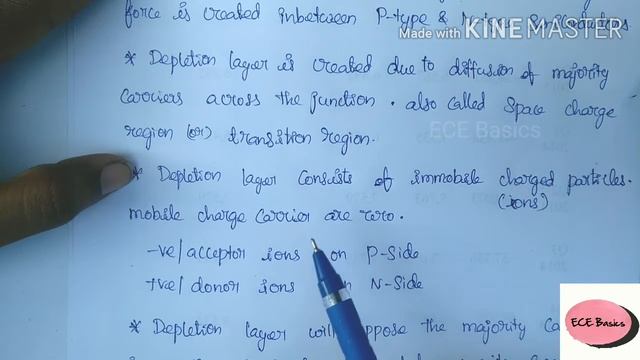 force is created inbetween P-type &
Made with KINEMASTER
* Depletion layer is created due to diffusion of majority
carriers across the junction. also called space charge
region (or) transition region.
ECE Basics
* Depletion layer consists of immobile charged particles.
(ions)
mobile charge carrier are zero.
-ve/acceptor ions on P-side
+ve/donor ions N-side
* Depletion layer will oppose the majority
ECE Basics